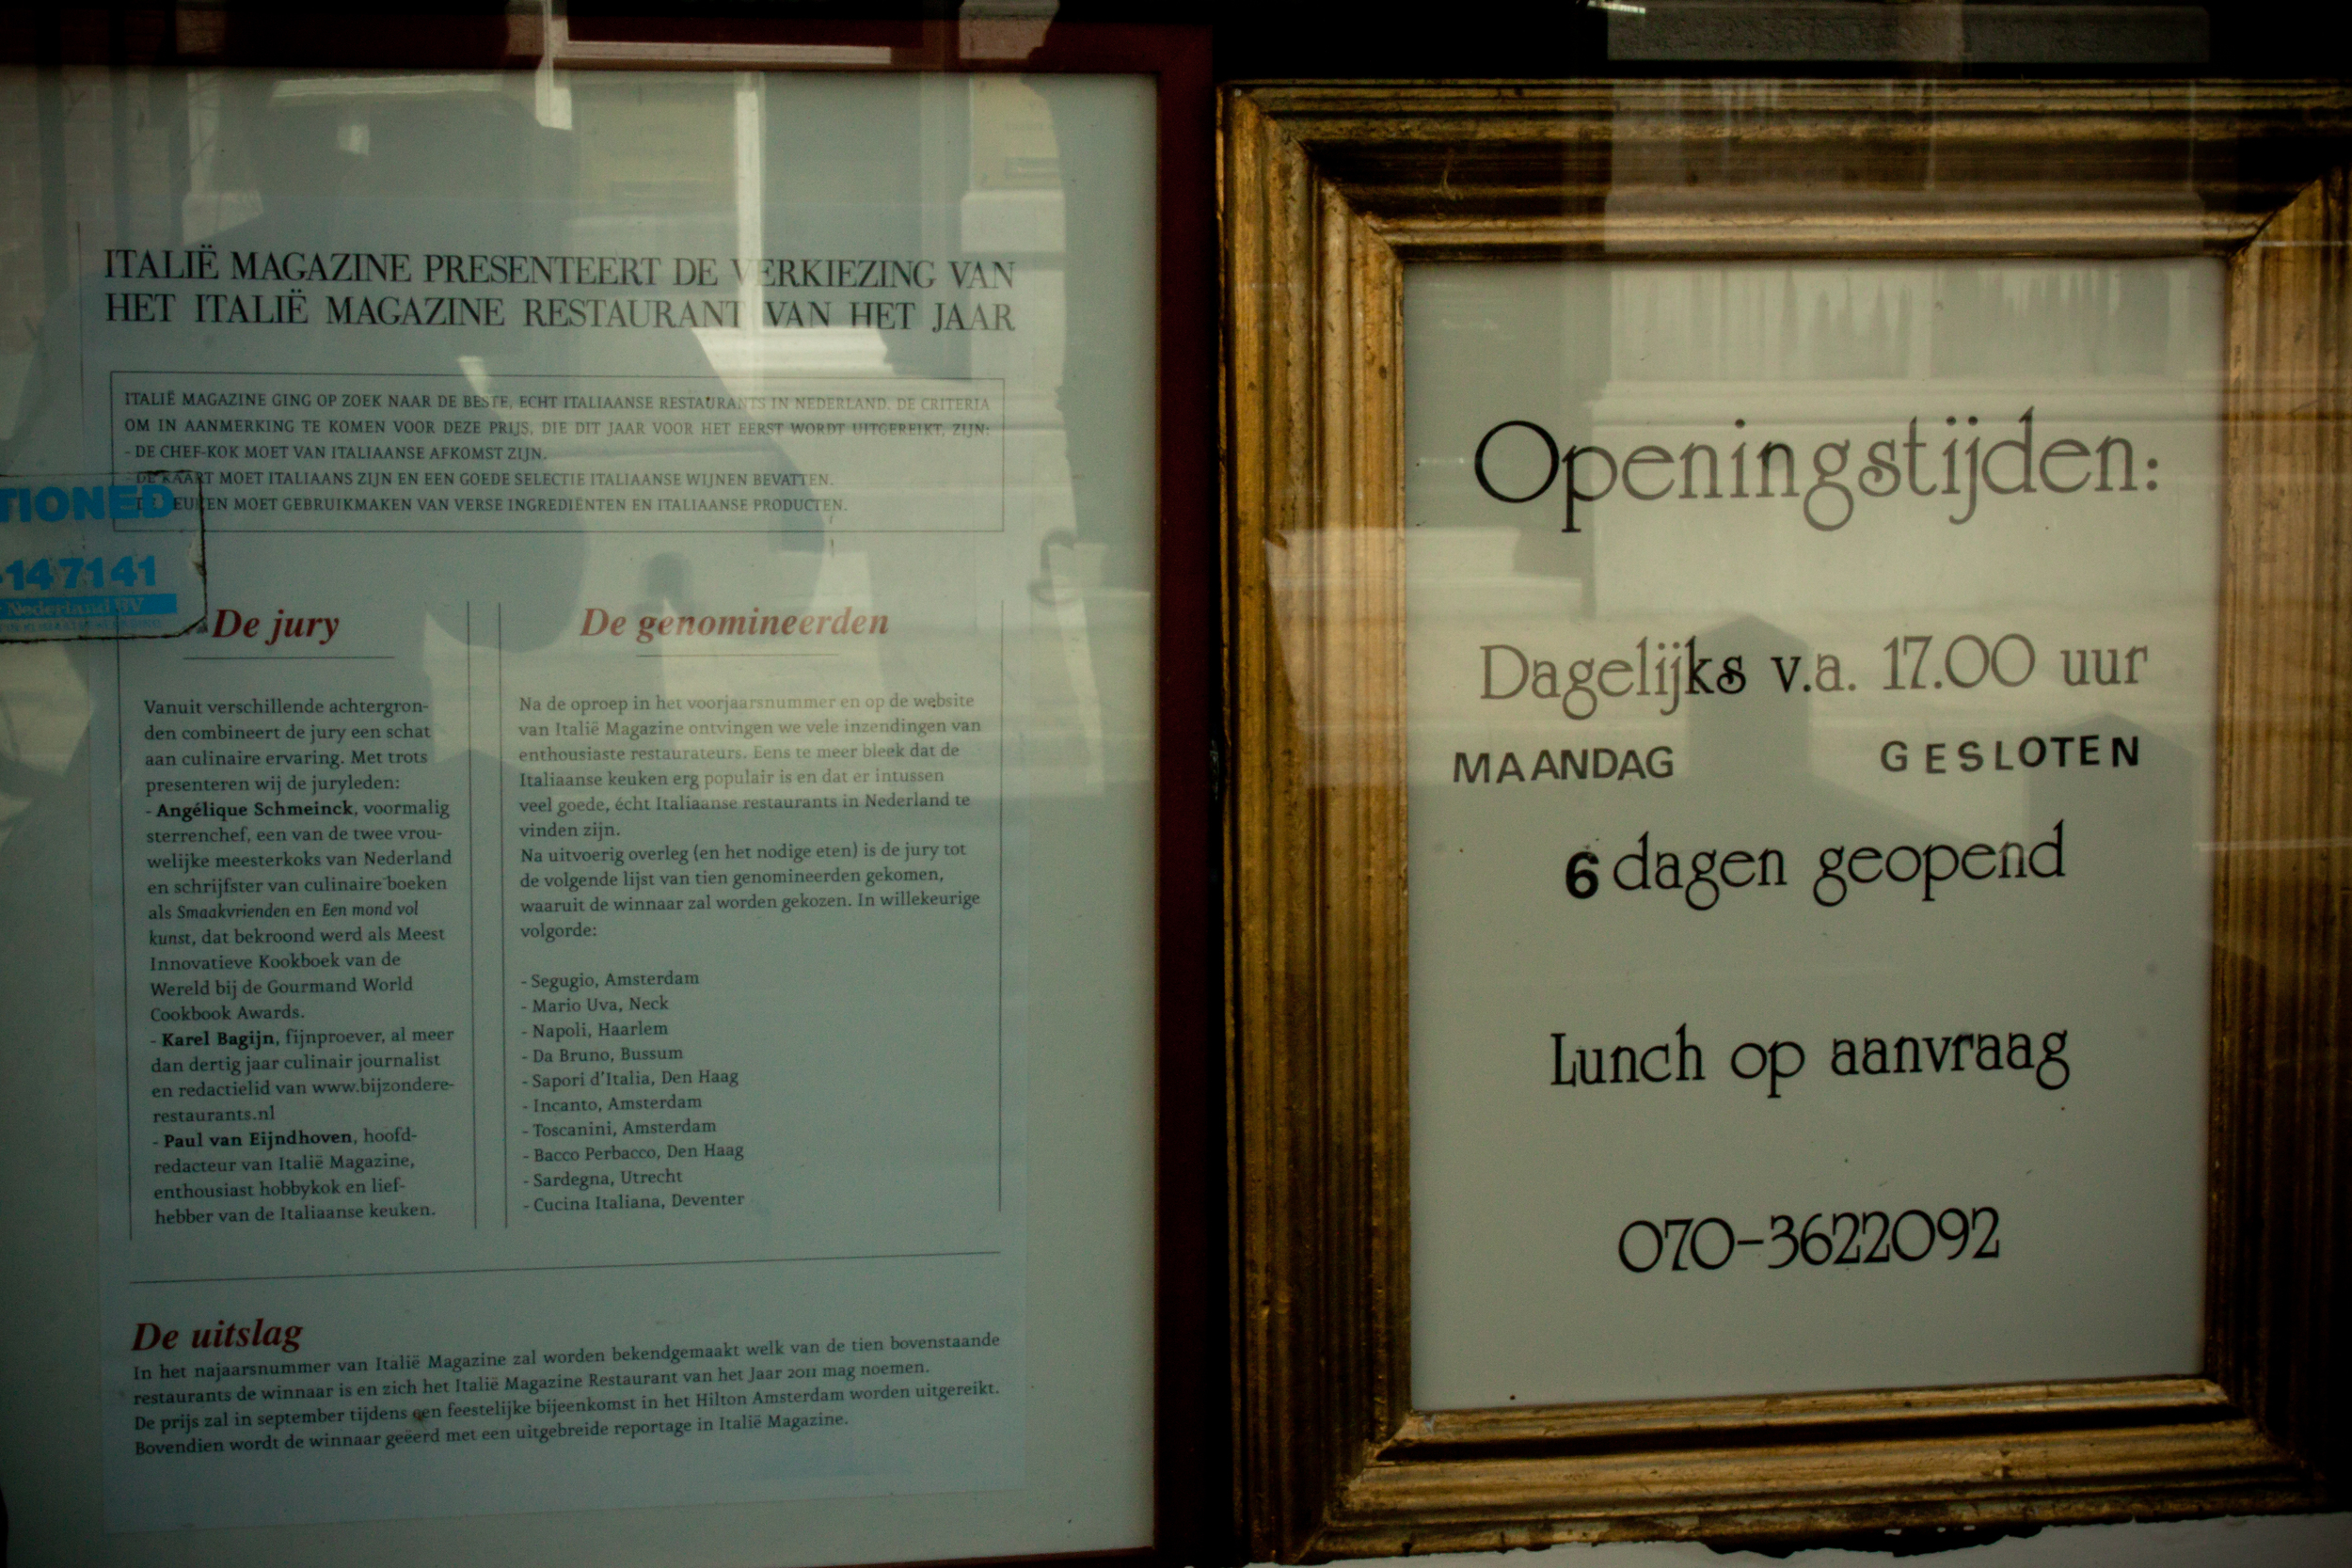 ITALIË MAGAZINE PRESENTEERT DE VERKIEZING VAN
HET ITALIË MAGAZINE RESTAURANT VAN HET JAAR
ITALIË MAGAZINE GING OP ZOEK NAAR DE BESTE, ECHT ITALIAANSE RESTAURANTS IN NEDERLAND. DE CRITERIA
OM IN AANMERKING TE KOMEN VOOR DEZE PRIJS, DIE DIT JAAR VOOR HET EERST WORDT UITGEREIKT, ZIJN:
- DE CHEF-KOK MOET VAN ITALIAANSE AFKOMST ZIJN.
DE KAART MOET ITALIAANS ZIJN EN EEN GOEDE SELECTIE ITALIAANSE WIJNEN BEVATTEN.
DE KEUKEN MOET GEBRUIKMAKEN VAN VERSE INGREDIËNTEN EN ITALIAANSE PRODUCTEN.
TIONED
-147141
Nederland BV
De jury
Vanuit verschillende achtergron-
den combineert de jury een schat
aan culinaire ervaring. Met trots
presenteren wij de juryleden:
- Angélique Schmeinck, voormalig
sterrenchef, een van de twee vrou-
welijke meesterkoks van Nederland
en schrijfster van culinaire boeken
als Smaakvrienden en Een mond vol
kunst, dat bekroond werd als Meest
Innovatieve Kookboek van de
Wereld bij de Gourmand World
Cookbook Awards.
- Karel Bagijn, fijnproever, al meer
dan dertig jaar culinair journalist
en redactielid van www.bijzondere-
restaurants.nl
- Paul van Eijndhoven, hoofd-
redacteur van Italië Magazine,
enthousiast hobbykok en lief-
hebber van de Italiaanse keuken.
De genomineerden
Na de oproep in het voorjaarsnummer en op de website
van Italië Magazine ontvingen we vele inzendingen van
enthousiaste restaurateurs. Eens te meer bleek dat de
Italiaanse keuken erg populair is en dat er intussen
veel goede, écht Italiaanse restaurants in Nederland te
vinden zijn.
Na uitvoerig overleg (en het nodige eten) is de jury tot
de volgende lijst van tien genomineerden gekomen,
waaruit de winnaar zal worden gekozen. In willekeurige
volgorde:
- Segugio, Amsterdam
- Mario Uva, Neck
- Napoli, Haarlem
- Da Bruno, Bussum
- Sapori d'Italia, Den Haag
- Incanto, Amsterdam
- Toscanini, Amsterdam
- Bacco Perbacco, Den Haag
- Sardegna, Utrecht
- Cucina Italiana, Deventer
De uitslag
In het najaarsnummer van Italië Magazine zal worden bekendgemaakt welk van de tien bovenstaande
restaurants de winnaar is en zich het Italië Magazine Restaurant van het Jaar 2011 mag noemen.
De prijs zal in september tijdens een feestelijke bijeenkomst in het Hilton Amsterdam worden uitgereikt.
Bovendien wordt de winnaar geëerd met een uitgebreide reportage in Italië Magazine.
Openingstijden:
Dagelijks v.a. 17.00 uur
MAANDAG GESLOTEN
6 dagen geopend
Lunch op aanvraag
070-3622092